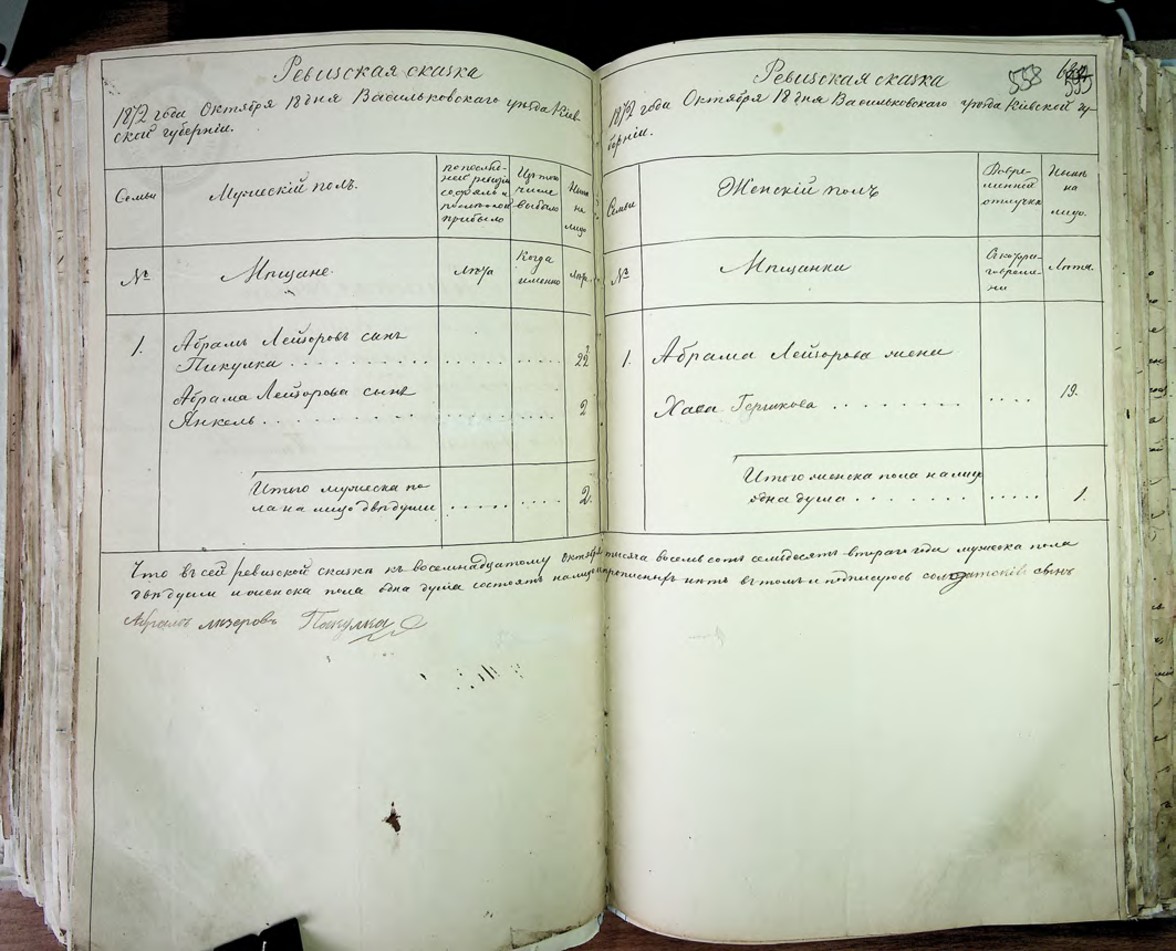 Ревизская сказка
1872 года Октября 18 дня Васильковскаго уѣзда Кіев-
ской губерніи.
Семьи
Мужескій полъ.
по послѣд-
ней ревизіи
состояло и
после того
прибыло
Изъ того
числа
выбыло
Нынѣ
на
лицо
№
Мѣщане.
Лѣта
Когда
именно
Лѣта.
1.
Абрамъ Лейзоровъ сынъ
Пикулка . . . . . . . . . . . . . . . . . . . . 22
Абрама Лейзорова сынъ
Янкель . . . . . . . . . . . . . . . . . . . . 2
Итого мужеска по-
ла на лицо двѣ души . . . . . . . . . . 2.
Ревизская сказка
558
1872 года Октября 18 дня Васильковскаго уѣзда Кіевской гу-
берніи.
Семьи
Женскій полъ
Во вре-
менной
отлучкѣ
Нынѣ
на
лицо.
№
Мѣщанки
Съ котора-
го време-
ни
Лѣта.
1.
Абрама Лейзорова жена
Хава Гершкова . . . . . . . . . . . . 19.
Итого женска пола на лицо
одна душа . . . . . . . . . . . . 1.
Что въ сей ревизской сказкѣ къ восемнадцатому октября тысяча восемь сотъ семьдесятъ втораго года мужеска пола
двѣ души и женска пола одна душа состоятъ на лицо и прописныхъ нѣтъ въ томъ и подписуюсь солдатскій сынъ
Абрамъ лизеровъ Пакулка